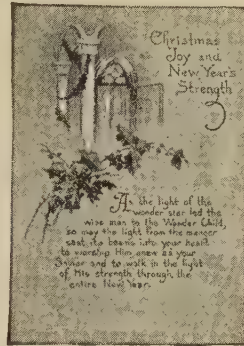 Christmas
Joy and
New Year's
Strength
As the light of the
wonder star led the
wise men to the Wonder Child
so may the light from the manger
cast its beams into your heart
to worship Him anew as your
Savior and to walk in the light
of His strength through the
entire New Year.